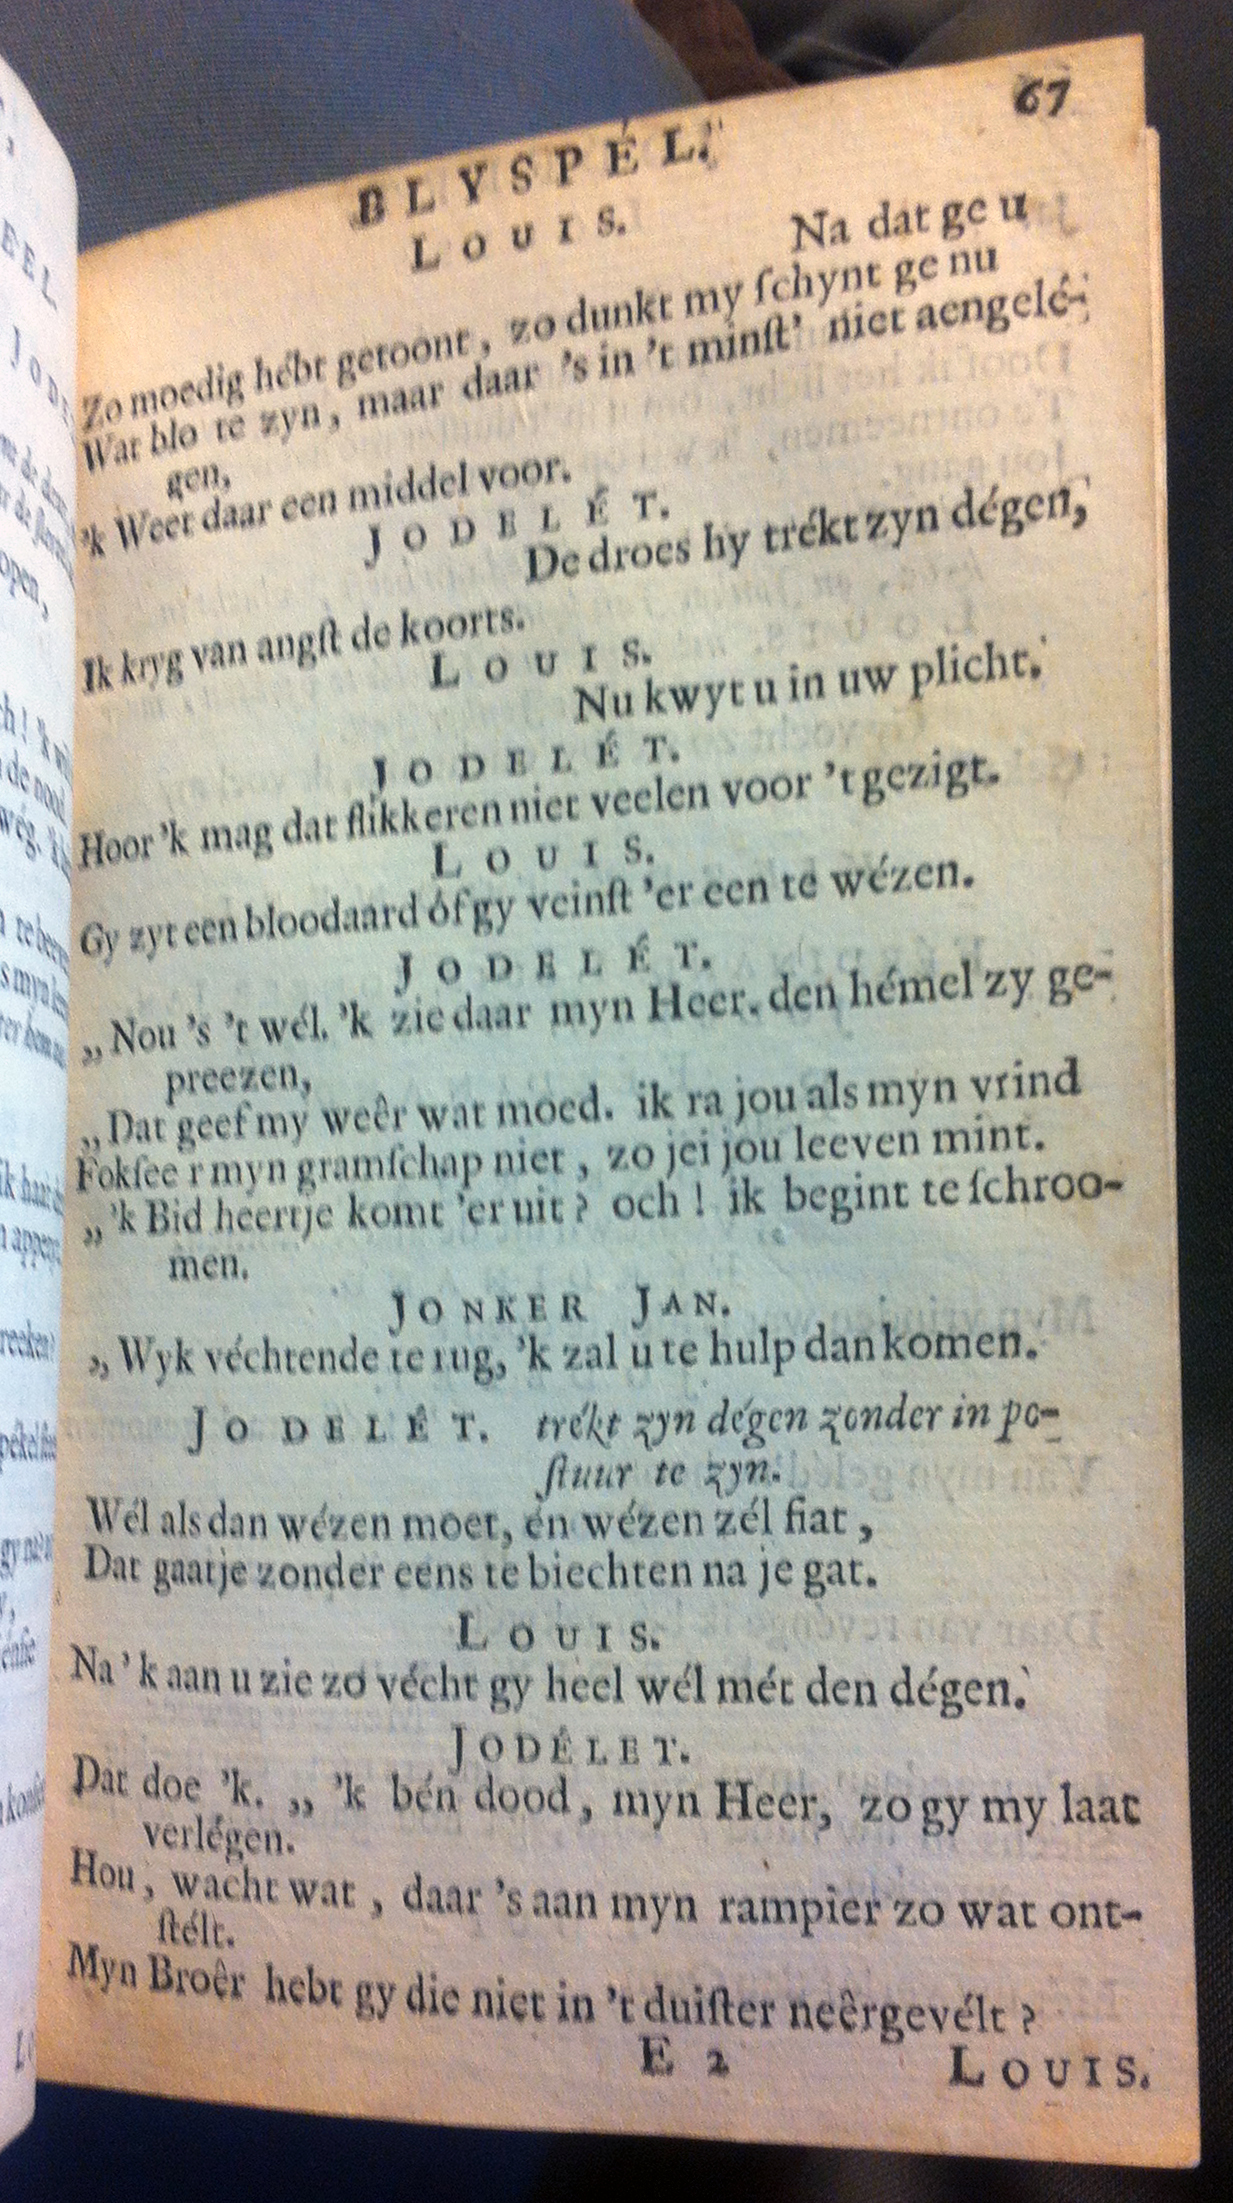 67
BLYSPÉL.
LOUIS.
Na dat ge u
Zo moedig hébt getoont, zo dunkt my ſchynt ge nu
Wat blo te zyn, maar daar 's in 't minſt' niet aengelé-
gen,
'k Weet daar een middel voor.
JODELÉT.
De droes hy trékt zyn dégen,
Ik kryg van angſt de koorts.
LOUIS.
Nu kwyt u in uw plicht.
JODELÉT.
Hoor 'k mag dat flikkeren niet veelen voor 't gezigt.
LOUIS.
Gy zyt een bloodaard óf gy veinſt 'er een te wézen.
JODELÉT.
„Nou 's 't wél. 'k zie daar myn Heer. den hémel zy ge-
preezen,
„Dat geef my weêr wat moed. ik ra jou als myn vrind
Fokſeer myn gramſchap niet, zo jei jou leeven mint.
„'k Bid heertje komt 'er uit? och! ik begint te ſchroo-
men.
JONKER JAN.
„Wyk véchtende te rug, 'k zal u te hulp dan komen.
JODELÉT. trékt zyn dégen zonder in po-
ſtuur te zyn.
Wél als dan wézen moet, én wézen zél fiat,
Dat gaatje zonder eens te biechten na je gat.
LOUIS.
Na 'k aan u zie zo vécht gy heel wél mét den dégen.
JODÉLET.
Dat doe 'k. „ 'k bén dood, myn Heer, zo gy my laat
verlégen.
Hou, wacht wat, daar 's aan myn rampier zo wat ont-
ſtélt.
Myn Broêr hebt gy die niet in 't duiſter neêrgevélt?
E 2
LOUIS.